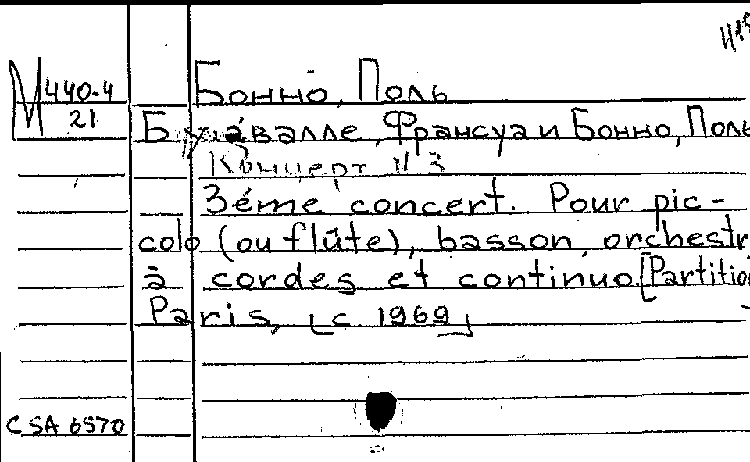 М 440-4
21
Бонно, Поль
Буавалле, Франсуа и Бонно, Поль
Концерт №3
3éme concert. Pour pic-
colo (ou flûte), basson, orchestr
à cordes et continuo. [Partitio
Paris, [c 1969]
CSA 6570